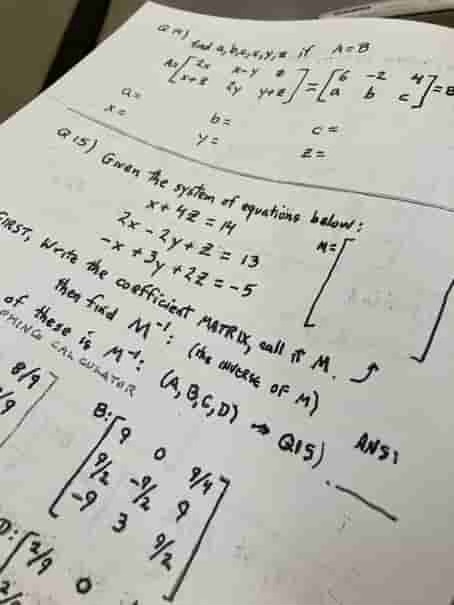 Q14)
find a,b,c,x,y,z if A=B
A=[2x x-y z
x+z 2y y+z]=[6 -2 4
a b c]=B
a= b= c=
x= y= z=
Q15) Given the system of equations below:
x+4z=14
2x-2y+z=13
-x+3y+2z=-5
M=[ ]
FIRST, Write the coefficient MATRIX, call it M.
then find M⁻¹: (the INVERSE OF M)
of these is M⁻¹: (A,B,C,D) → Q15)
ANS:
CALCULATOR
8/9
/9
B:[9 0 9/4
9/2 -9/2 9
-9 3 9/2]
D:[2/9 0
2/